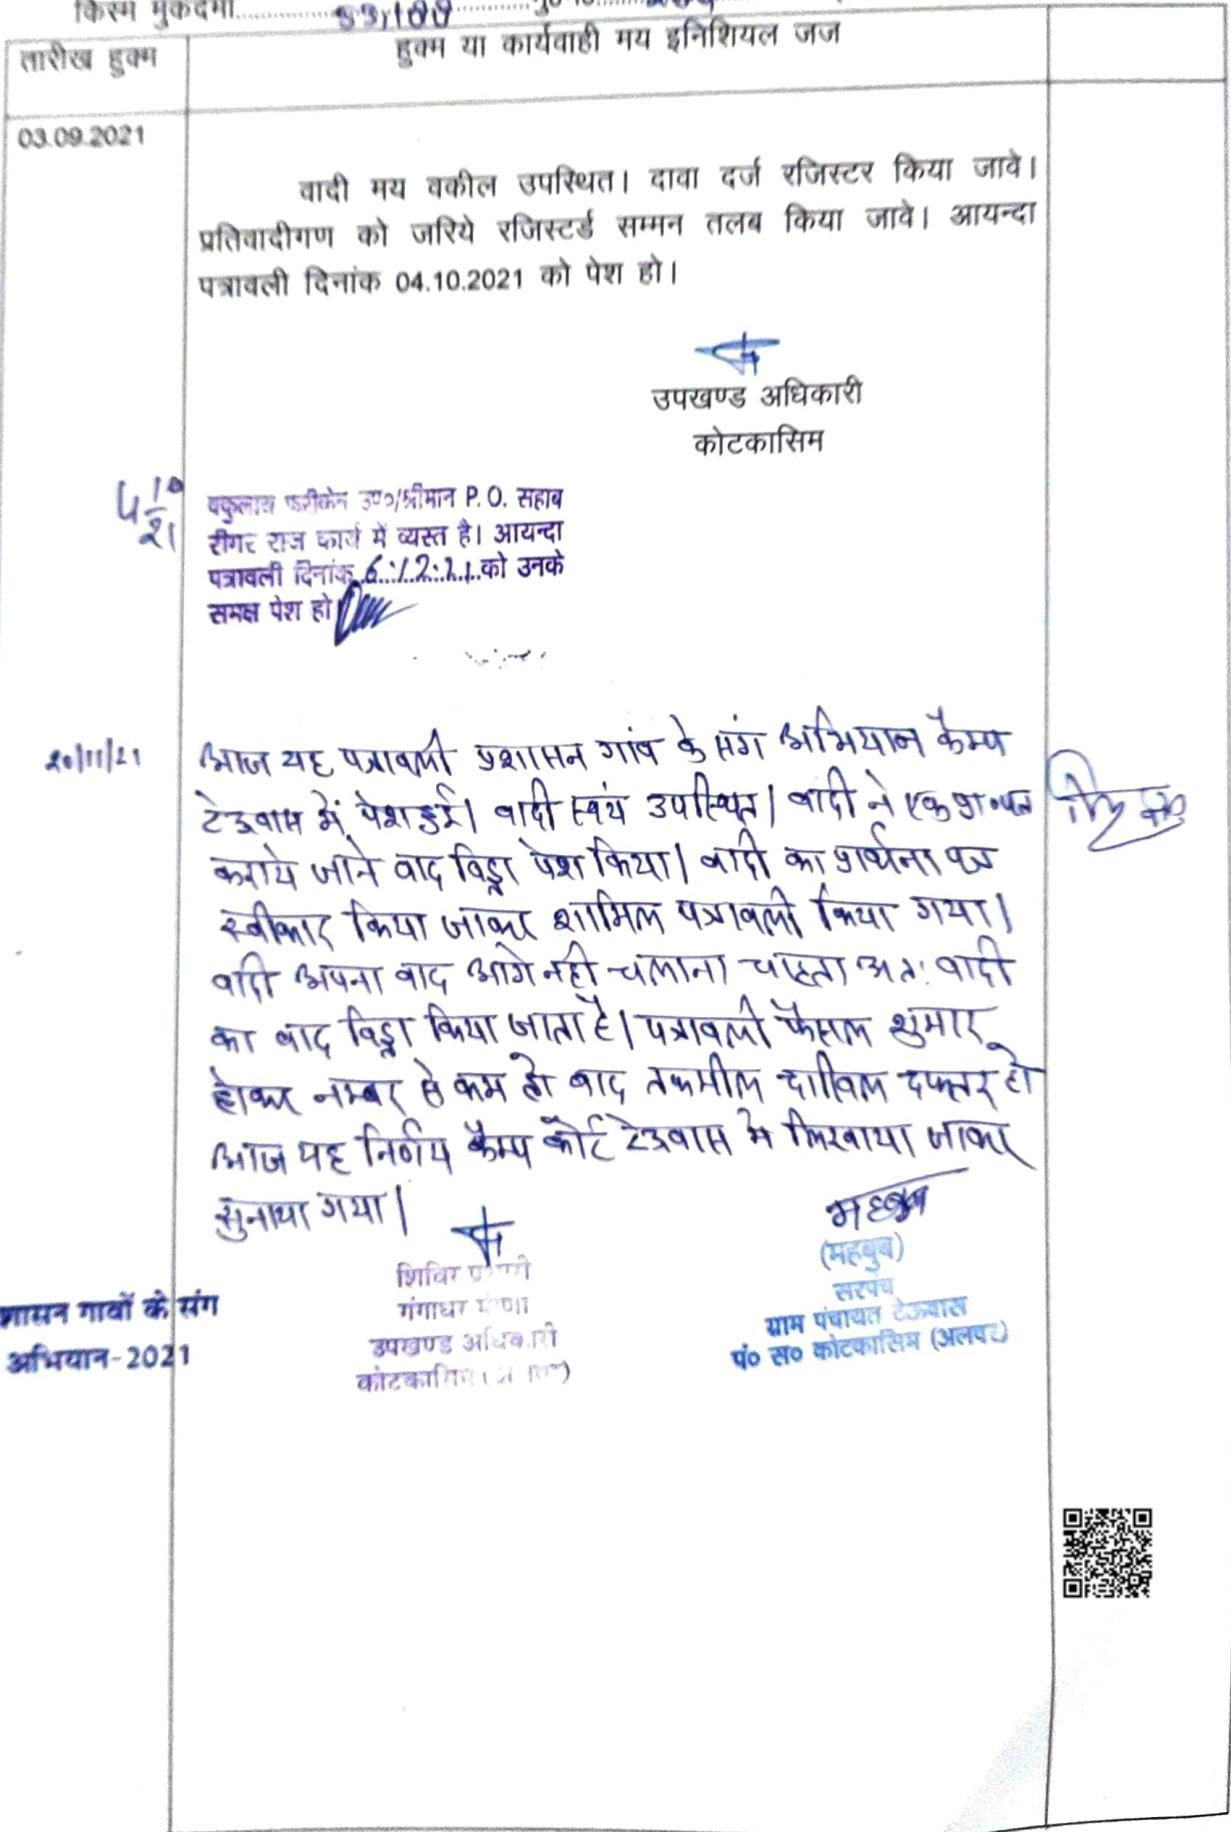 किस्म मुकदमा
तारीख हुक्म
हुक्म या कार्यवाही मय इनिशियल जज
03.09.2021
वादी मय वकील उपस्थित। दावा दर्ज रजिस्टर किया जावे।
प्रतिवादीगण को जरिये रजिस्टर्ड सम्मन तलब किया जावे। आयन्दा
पत्रावली दिनांक 04.10.2021 को पेश हो।
उपखण्ड अधिकारी
कोटकासिम
4/10/21
वकुलाय फरीकेन उप०/श्रीमान P.O. सहाब
दीगर राज कार्य में व्यस्त है। आयन्दा
पत्रावली दिनांक 6.12.21 को उनके
समक्ष पेश हो
20/11/21
आज यह पत्रावली प्रशासन गांव के संग अभियान कैम्प
टेऊवास में पेश हुई। वादी स्वयं उपस्थित। वादी ने एक प्रा०पत्र
कराये जाने वाद विड्रा पेश किया। वादी का प्रार्थना पत्र
स्वीकार किया जाकर शामिल पत्रावली किया गया।
वादी अपना वाद आगे नही चलाना चाहता अतः वादी
का वाद विड्रा किया जाता है। पत्रावली फैसल शुमार
होकर नम्बर से कम हो बाद तकमील दाखिल दफ्तर हो
आज यह निर्णय कैम्प कोर्ट टेऊवास मे लिखाया जाकर
सुनाया गया।
महबुब
(महबुब)
सरपंच
ग्राम पंचायत टेऊवास
पं० स० कोटकासिम (अलवर)
शिविर प्रभारी
गंगाधर मीणा
उपखण्ड अधिकारी
कोटकासिम
शासन गावों के संग
अभियान-2021